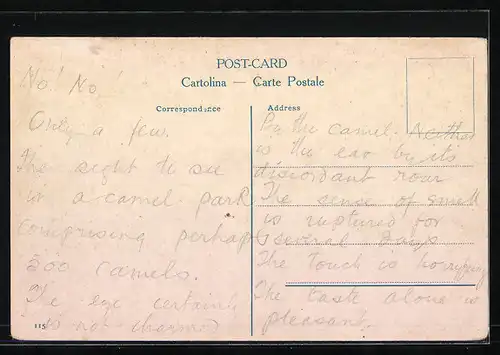 POST-CARD
Cartolina — Carte Postale
Correspondence
Address
No! No!
Only a few.
The sight to see
is a camel park
comprising perhaps
500 camels.
The eye certainly
is not charmed
By the camel. Neither
is the ear by its
discordant roar
The sense of smell
is ruptured for
several days
The touch is horrifying
The taste alone is
pleasant.
115